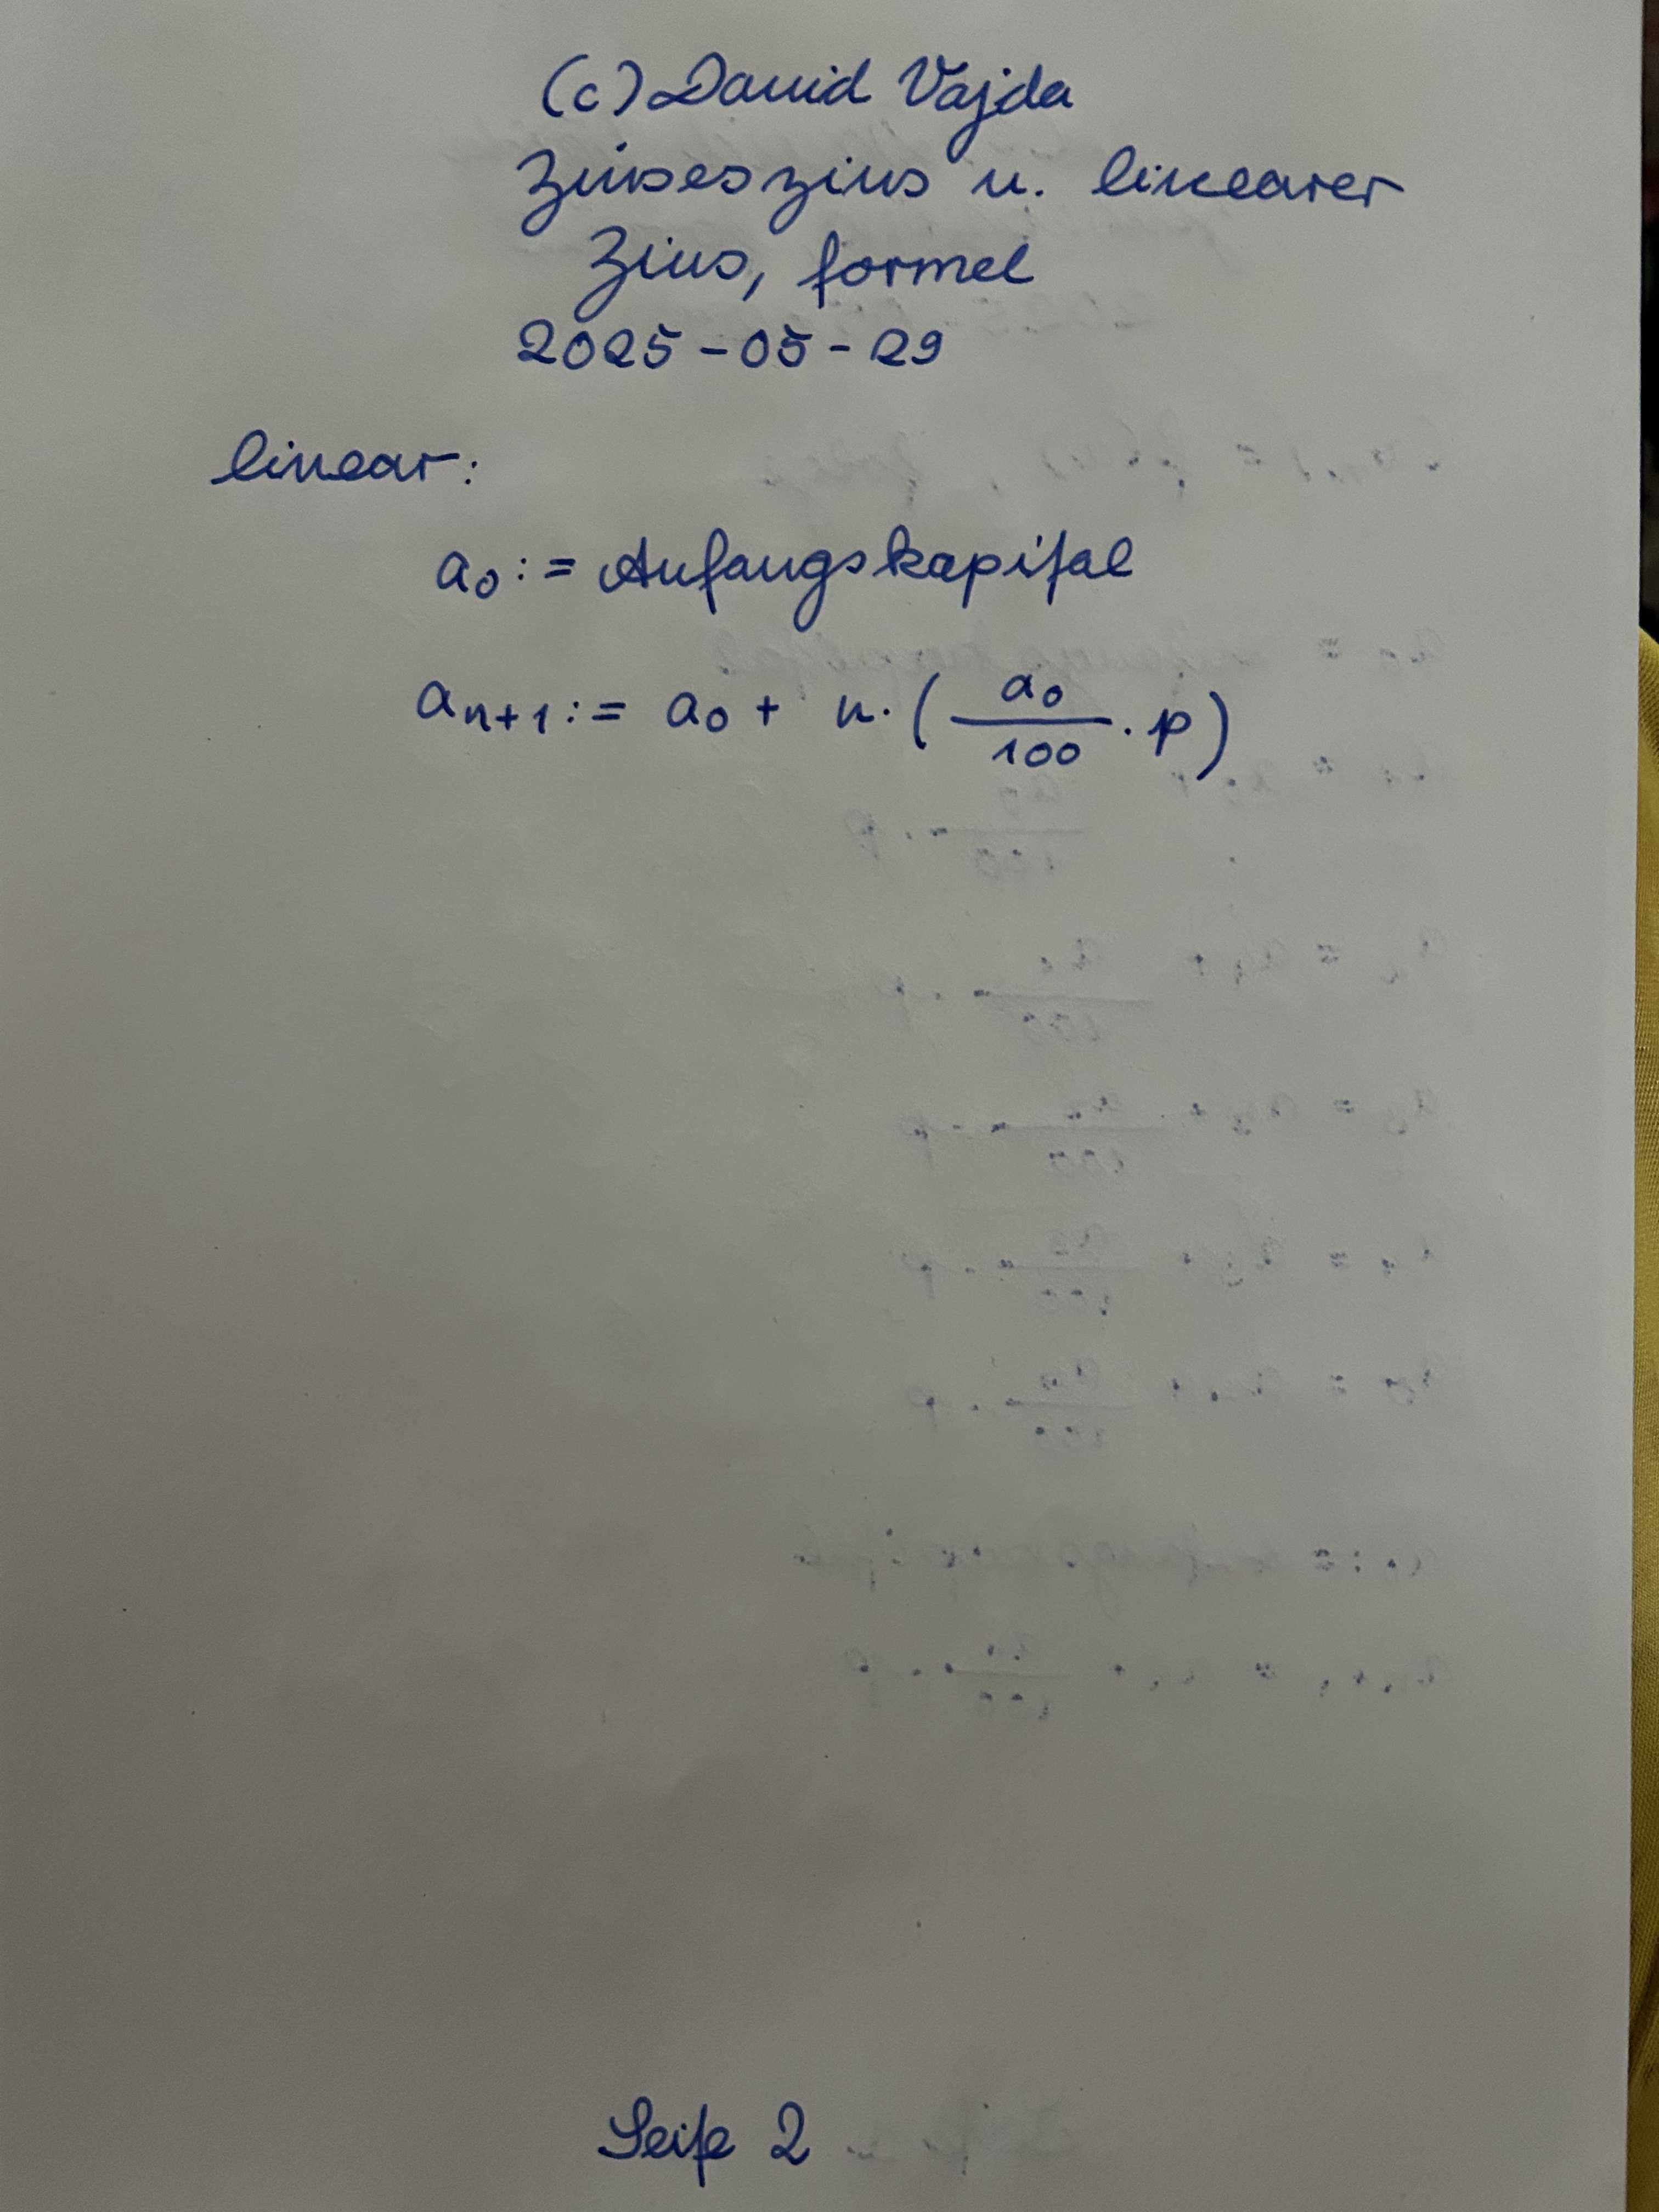 (c) David Vajda
Zinseszins u. linearer
Zins, formel
2025-05-29
linear:
a₀ := Anfangskapital
aₙ₊₁ := a₀ + n · ( a₀/100 · p )
Seite 2